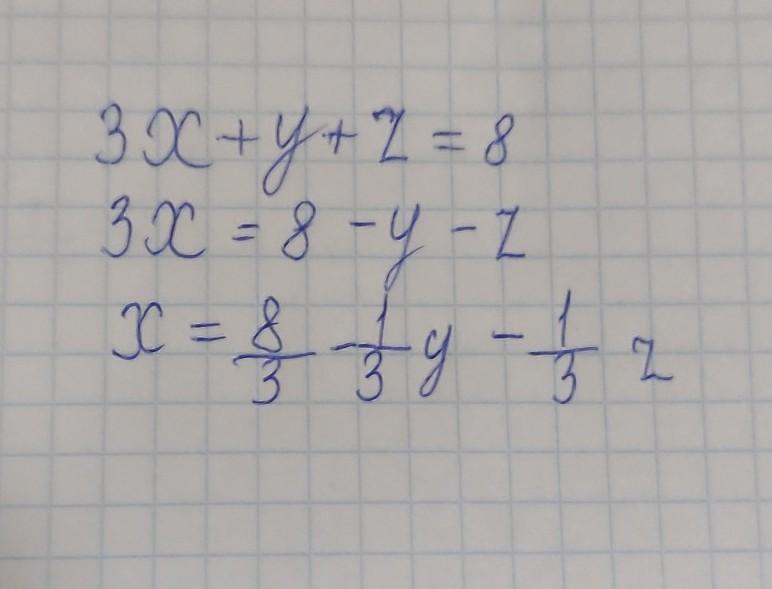 3x + y + z = 8
3x = 8 - y - z
x = 8/3 - 1/3 y - 1/3 z